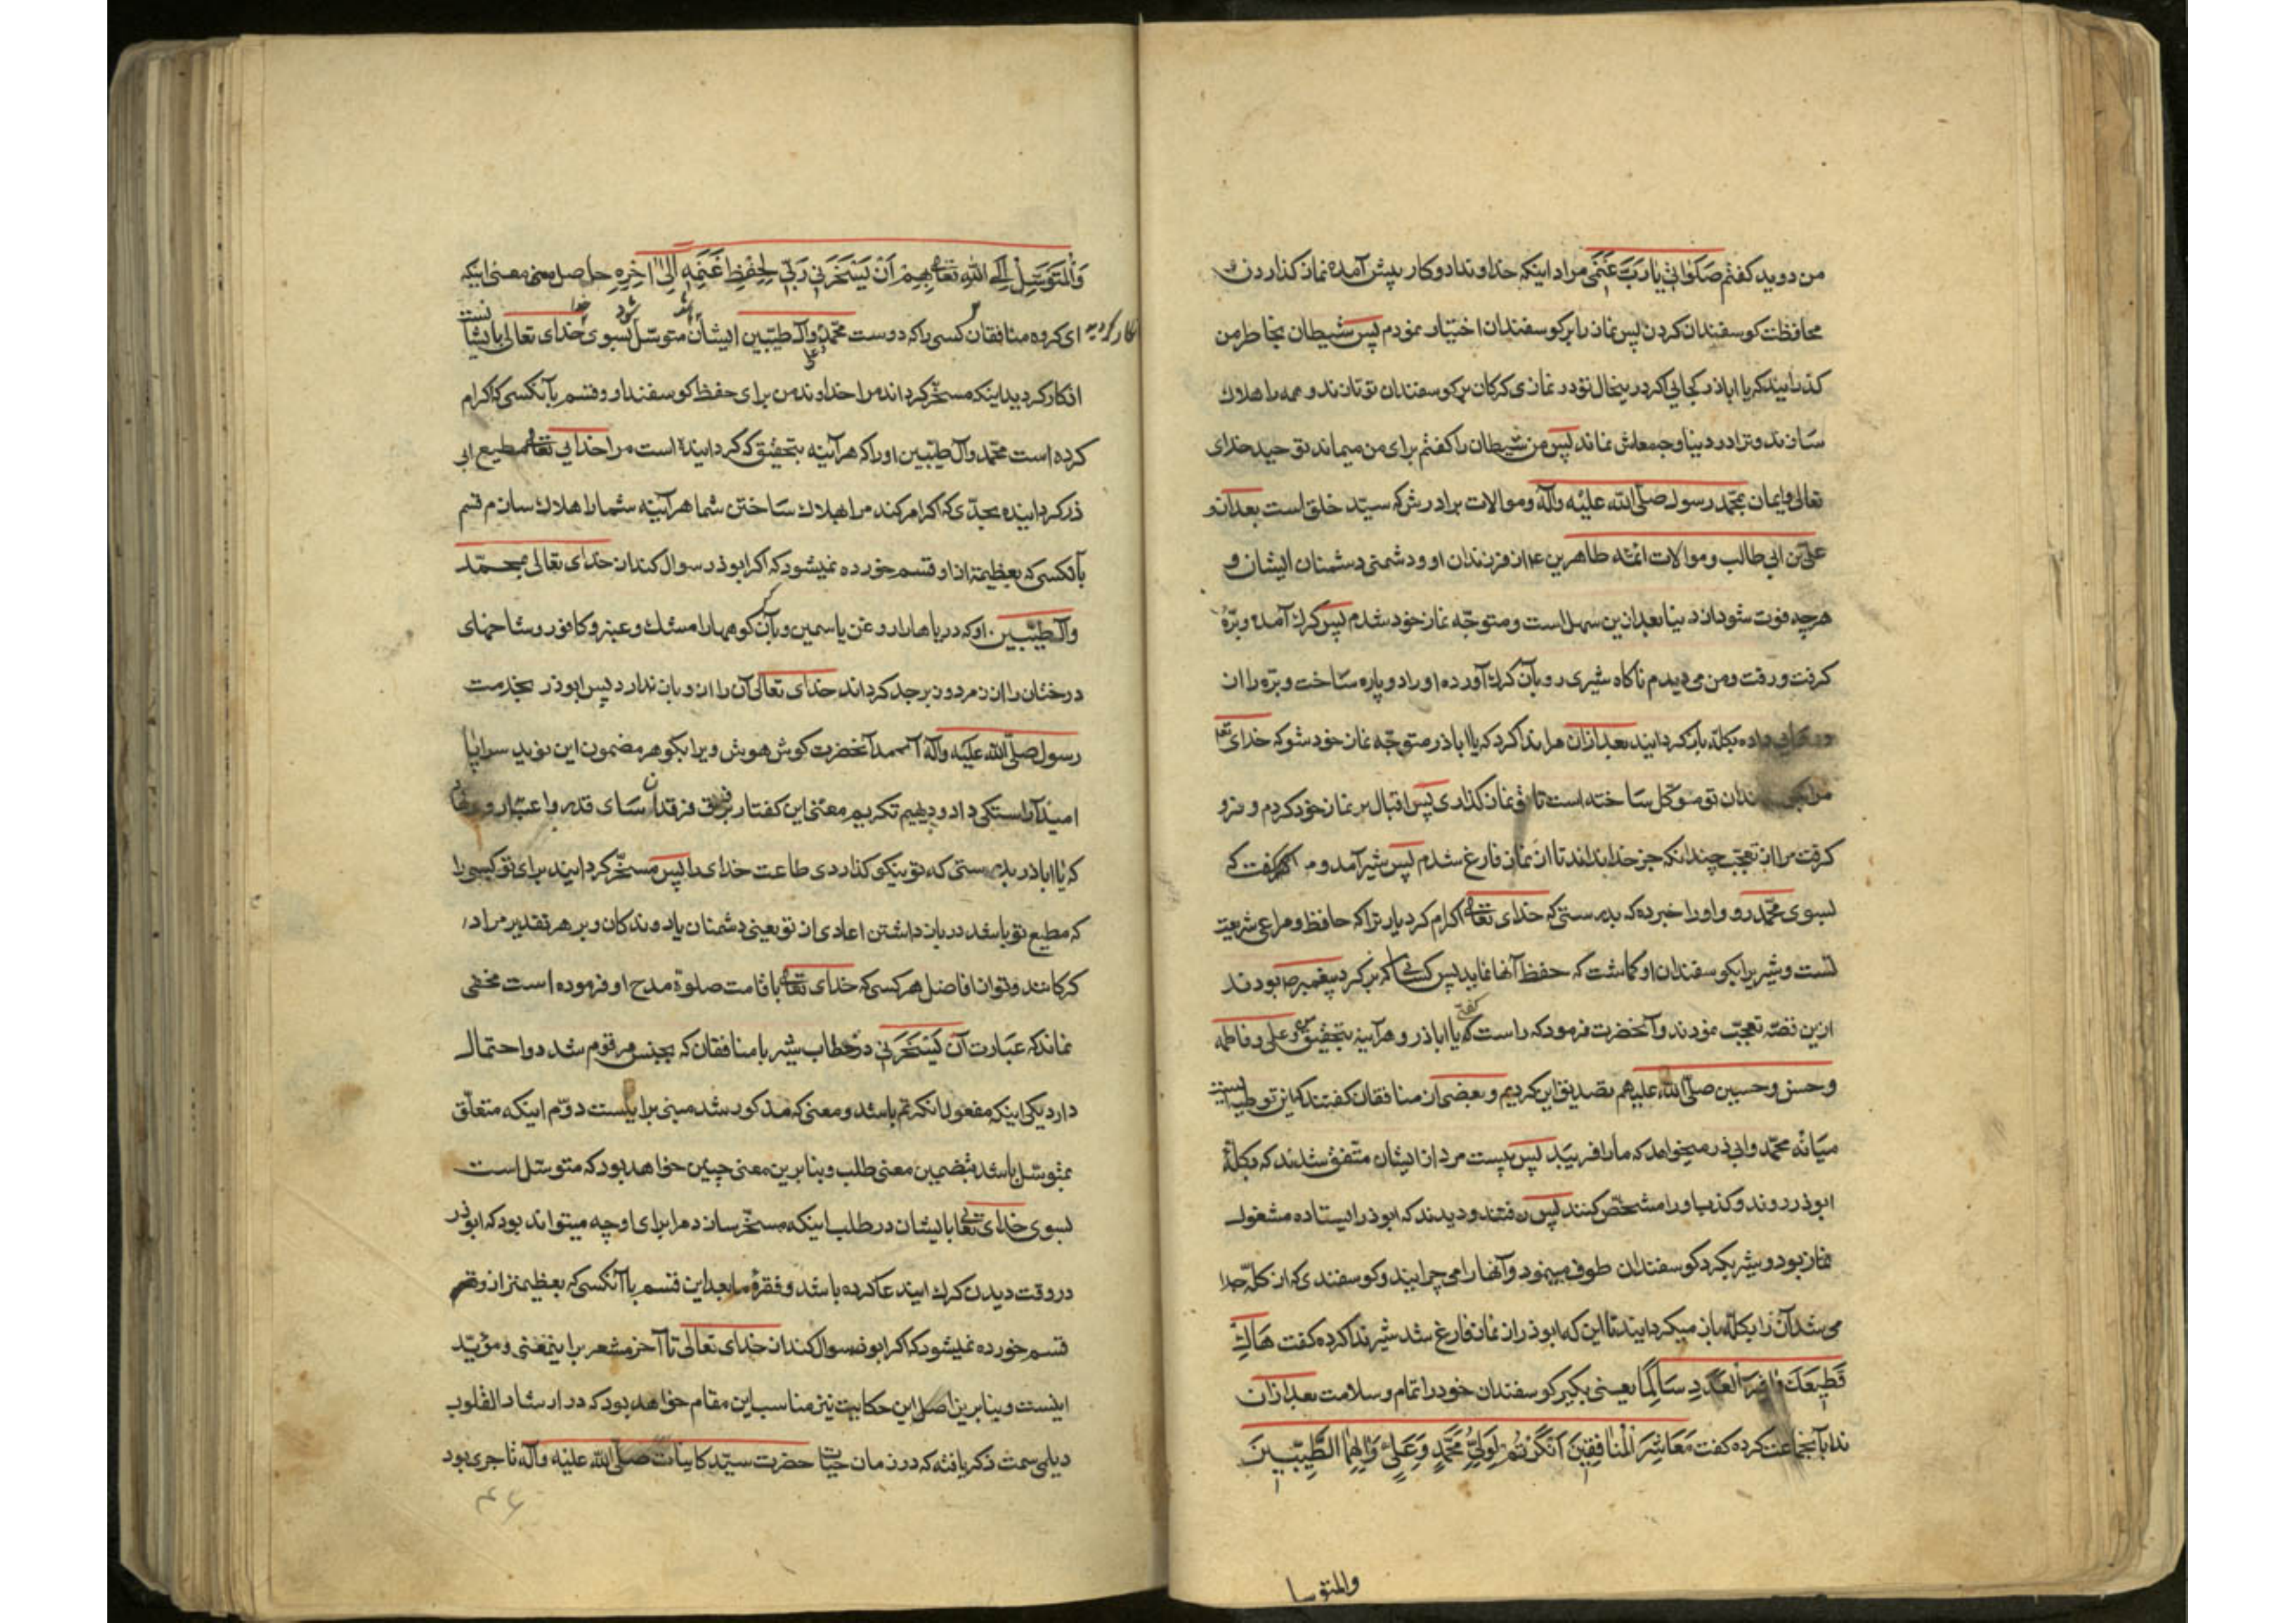 من دوید کفتم صَلَوٰاتی یٰا رَبّ غَنَمی مراد اینکه خداوندا دو کار پیش آمده نماز کذاردن و
محافظت کوسفندان کردن پس نماز را بر کوسفندان اختیار نمودم پس شیطان بخاطر من
کذرانید که یا اباذر کجایی اکر درینحال تو در نمازی کرکان بر کوسفندان تو تازند و همه را هلاك
سازند و ترا در دنیا وجه معاش نماند پس من شیطان را کفتم برای من میماند توحید خدای
تعالی و ایمان بمحمّد رسول صلّی الله علیه وآله و موالات برادرش که سیّد خلق است بعد از او
علی بن ابی طالب و موالات ائمّه طاهرین ع از فرزندان او و دشمنی دشمنان ایشان و
هرچه فوت شود از دنیا بعد ازین سهل است و متوجّه نماز خود شدم پس کرك آمده و برّهٔ
کرفت و رفت و من می دیدم ناکاه شیری رو بآن کرك آورده او را دو پاره ساخت و برّه را از
داده بکلّه باز کردانید بعد ازان مرا ندا کرد که یا اباذر متوجّه نماز خود شو که خدای تعا
مرا تو موکّل ساخته است تا تو نماز کذاری پس اقبال بر نماز خود کردم و فرو
کرفت مرا از تعجّب چندانکه جز خدا نداند تا از نماز فارغ شدم پس شیر آمد و مرا کفت که
بسوی محمّد رو و او را خبر ده که بدرستی که خدای تعالی اکرام کرد یار ترا که حافظ و مراعی شریعت
تست و شیر برا بکوسفندان او کماشت که حفظ آنها نماید پس کسانی که بر کرد پیغمبر ص بودند
ازین قصّه تعجّب نمودند و آنحضرت فرمود که راست کفتی یا اباذر و هرآینه بتحقیق من و علی و فاطمه
و حسن و حسین صلّی الله علیهم تصدیق این کردیم و بعضی از منافقان کفتند که این توطئه ایست
میانهٔ محمّد و ابی ذر میخواهد که ما را فریبد پس بیست مرد از ایشان متّفق شدند که بکلّهٔ
ابوذر روند و کذب او را مشخّص کنند پس رفتند و دیدند که ابوذر ایستاده مشغول
نماز بود و شیر بکرد کوسفندان طوف مینمود و آنها را می چرانید و کوسفندی که از کلّه جدا
می شد آن را بکلّه باز میکردانید تا این که ابوذر از نماز فارغ شد شیر ندا کرده کفت هٰاكَ
قَطیعَكَ وٰافِرَ الْعَدَدِ سٰالِمًا یعنی بکیر کوسفندان خود را تمام و سلامت بعد ازان
ندا بآنجماعت کرده کفت مَعٰاشِرَ الْمُنٰافِقینَ اَنْکَرْتُمْ لِوَلِیِّ مُحَمَّدٍ وَعَلِیٍّ وَاٰلِهِمَا الطَّیِّبینَ
والمتوسل
وَالْمُتَوَسِّلِ اِلَی اللّٰهِ تَعٰالی بِهِمْ اَنْ یُسَخِّرَنی رَبّی لِحِفْظِ غَنَمِهِ اِلیٰ اٰخِرِهِ حاصل معنی اینکه
ای کروه منافقان کسی را که دوست محمّد و علی و آل طیّبین ایشان متوسّل بسوی خدای تعالی بایشان
انکار کردید اینکه مسخّر کرداند مرا خداوند من برای حفظ کوسفند او و قسم بآنکسی که اکرام
کرده است محمّد و آل طیّبین او را که هرآینه بتحقیق که کردانیده است مرا خدای تعالی مطیع ابی
ذر کردانیده بحدّی که اکر امر کند مرا بهلاك ساختن شما هرآینه شما را هلاك سازم قسم
بآنکسی که بعظیمتر از او قسم خورده نمیشود که اکر ابوذر سوال کند از خدای تعالی بمحمّد
و آل طیّبین او که دریاها را روغن یاسمین و بان کوهها را مسك و عنبر و کافور و شاخهای
درختان را از زمرد و زبرجد کرداند خدای تعالی آن را ازو باز ندارد پس ابوذر بخدمت
رسول صلّی الله علیه وآله آمد آنحضرت کوش هوش ویرا بکوهر مضمون این نوید سراپا
امید آراستکی داد و دیهیم تکریم معنی این کفتار بر فرق فرقدان سای قدر و اعتبار وی نهاد
که یا اباذر بدرستی که تو نیکو کذاردی طاعت خدای را پس مسخّر کردانید برای تو کسی را
که مطیع تو باشد در باز داشتن اعادی از تو یعنی دشمنان یا دوندکان و بر هر تقدیر مراد
کرکانند و تو از افاضل هر کسی که خدای تعالی باقامت صلوة مدح او فرموده است مخفی
نماند که عبارت اَن یُسَخِّرَنی در خطاب شیر با منافقان که بجنس مرقوم شد دو احتمال
دارد یکی اینکه مفعول انکرتم باشد و معنی که مذکور شد مبنی براینست دوّم اینکه متعلّق
بمتوسّل باشد بتضمین معنی طلب و بنابرین معنی چنین خواهد بود که متوسّل است
بسوی خدای تعالی بایشان در طلب اینکه مسخّر سازد مرا برای او چه میتواند بود که ابوذر
در وقت دیدن کرك ایند عا کرده باشد و فقرهٔ ما بعد این قسم باآنکسی که بعظیمتر ازو قسم
قسم خورده نمیشود که اکر ابوذر سوال کند از خدای تعالی تا آخر مشعر براینمعنی و مؤیّد
اینست و بنابرین اصل این حکایت نیز مناسب این مقام خواهد بود که در ارشاد القلوب
دیلمی سمت ذکر یافته که در زمان حیات حضرت سیّد کاینات صلّی الله علیه وآله تاجری بود